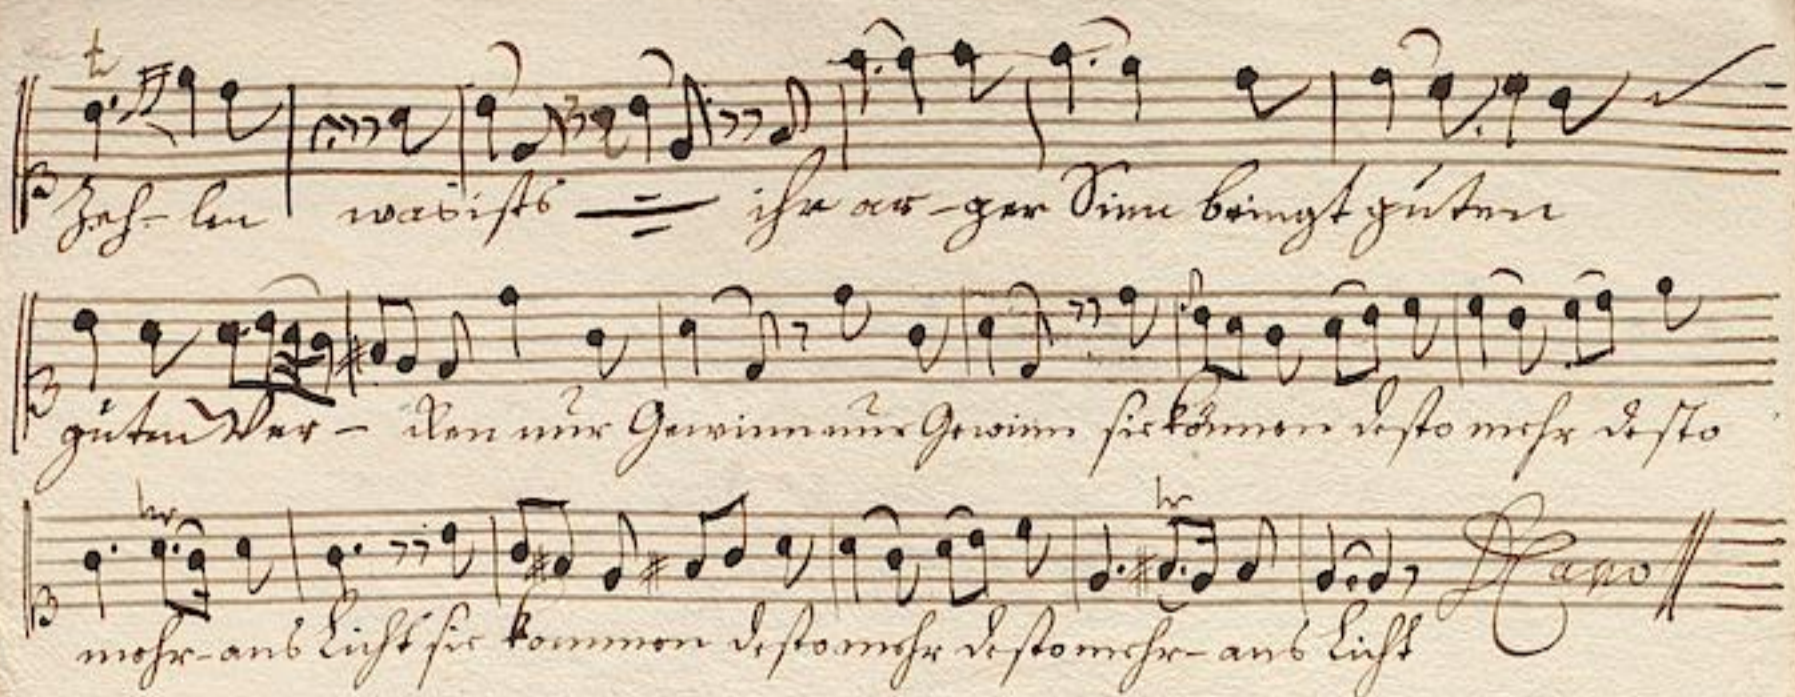 Zeh- len was ists ihr ar-ger Sinn bringt guten
guten Wer- ken nur Gewinn nur Gewinn sie kommen desto mehr desto
mehr-ans Licht sie kommen desto mehr desto mehr- ans Licht D Capo